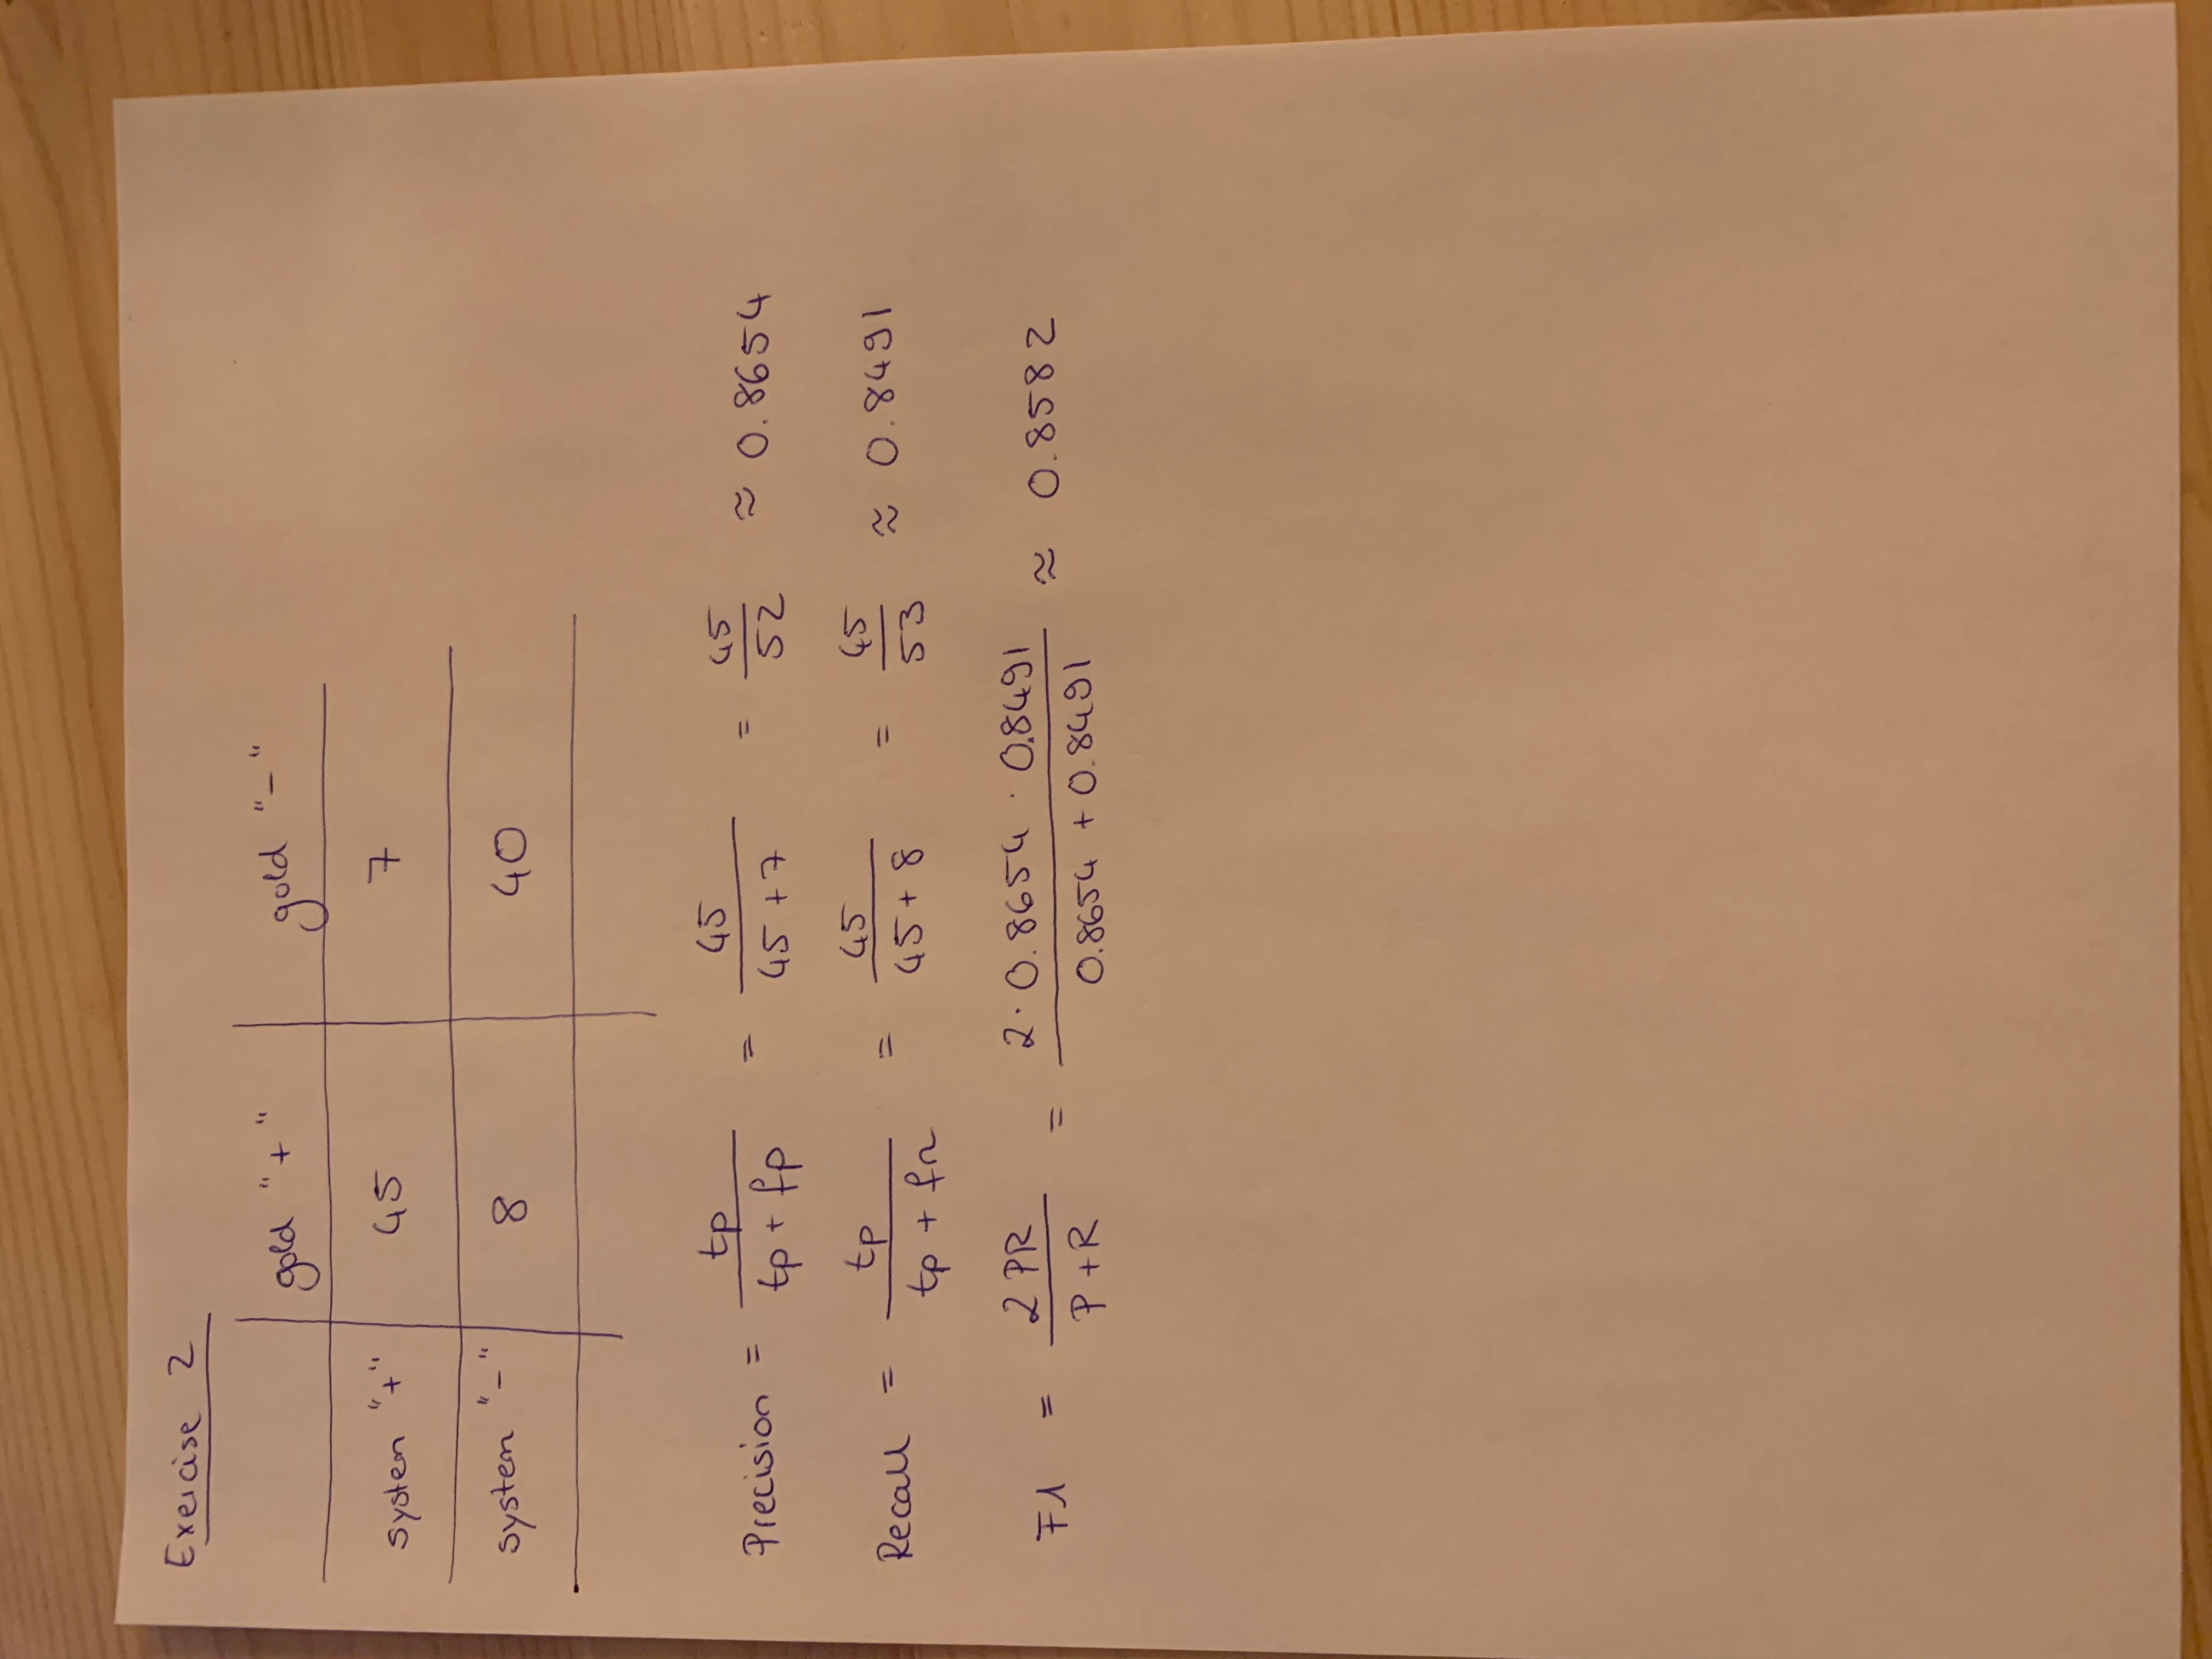 Exercise 2
gold "+" gold "-"
system "+" 45 7
system "-" 8 40
Precision = tp / tp + fp = 45 / 45 + 7 = 45 / 52 ≈ 0.8654
Recall = tp / tp + fn = 45 / 45 + 8 = 45 / 53 ≈ 0.8491
F1 = 2 PR / P + R = 2 · 0.8654 · 0.8491 / 0.8654 + 0.8491 ≈ 0.8582